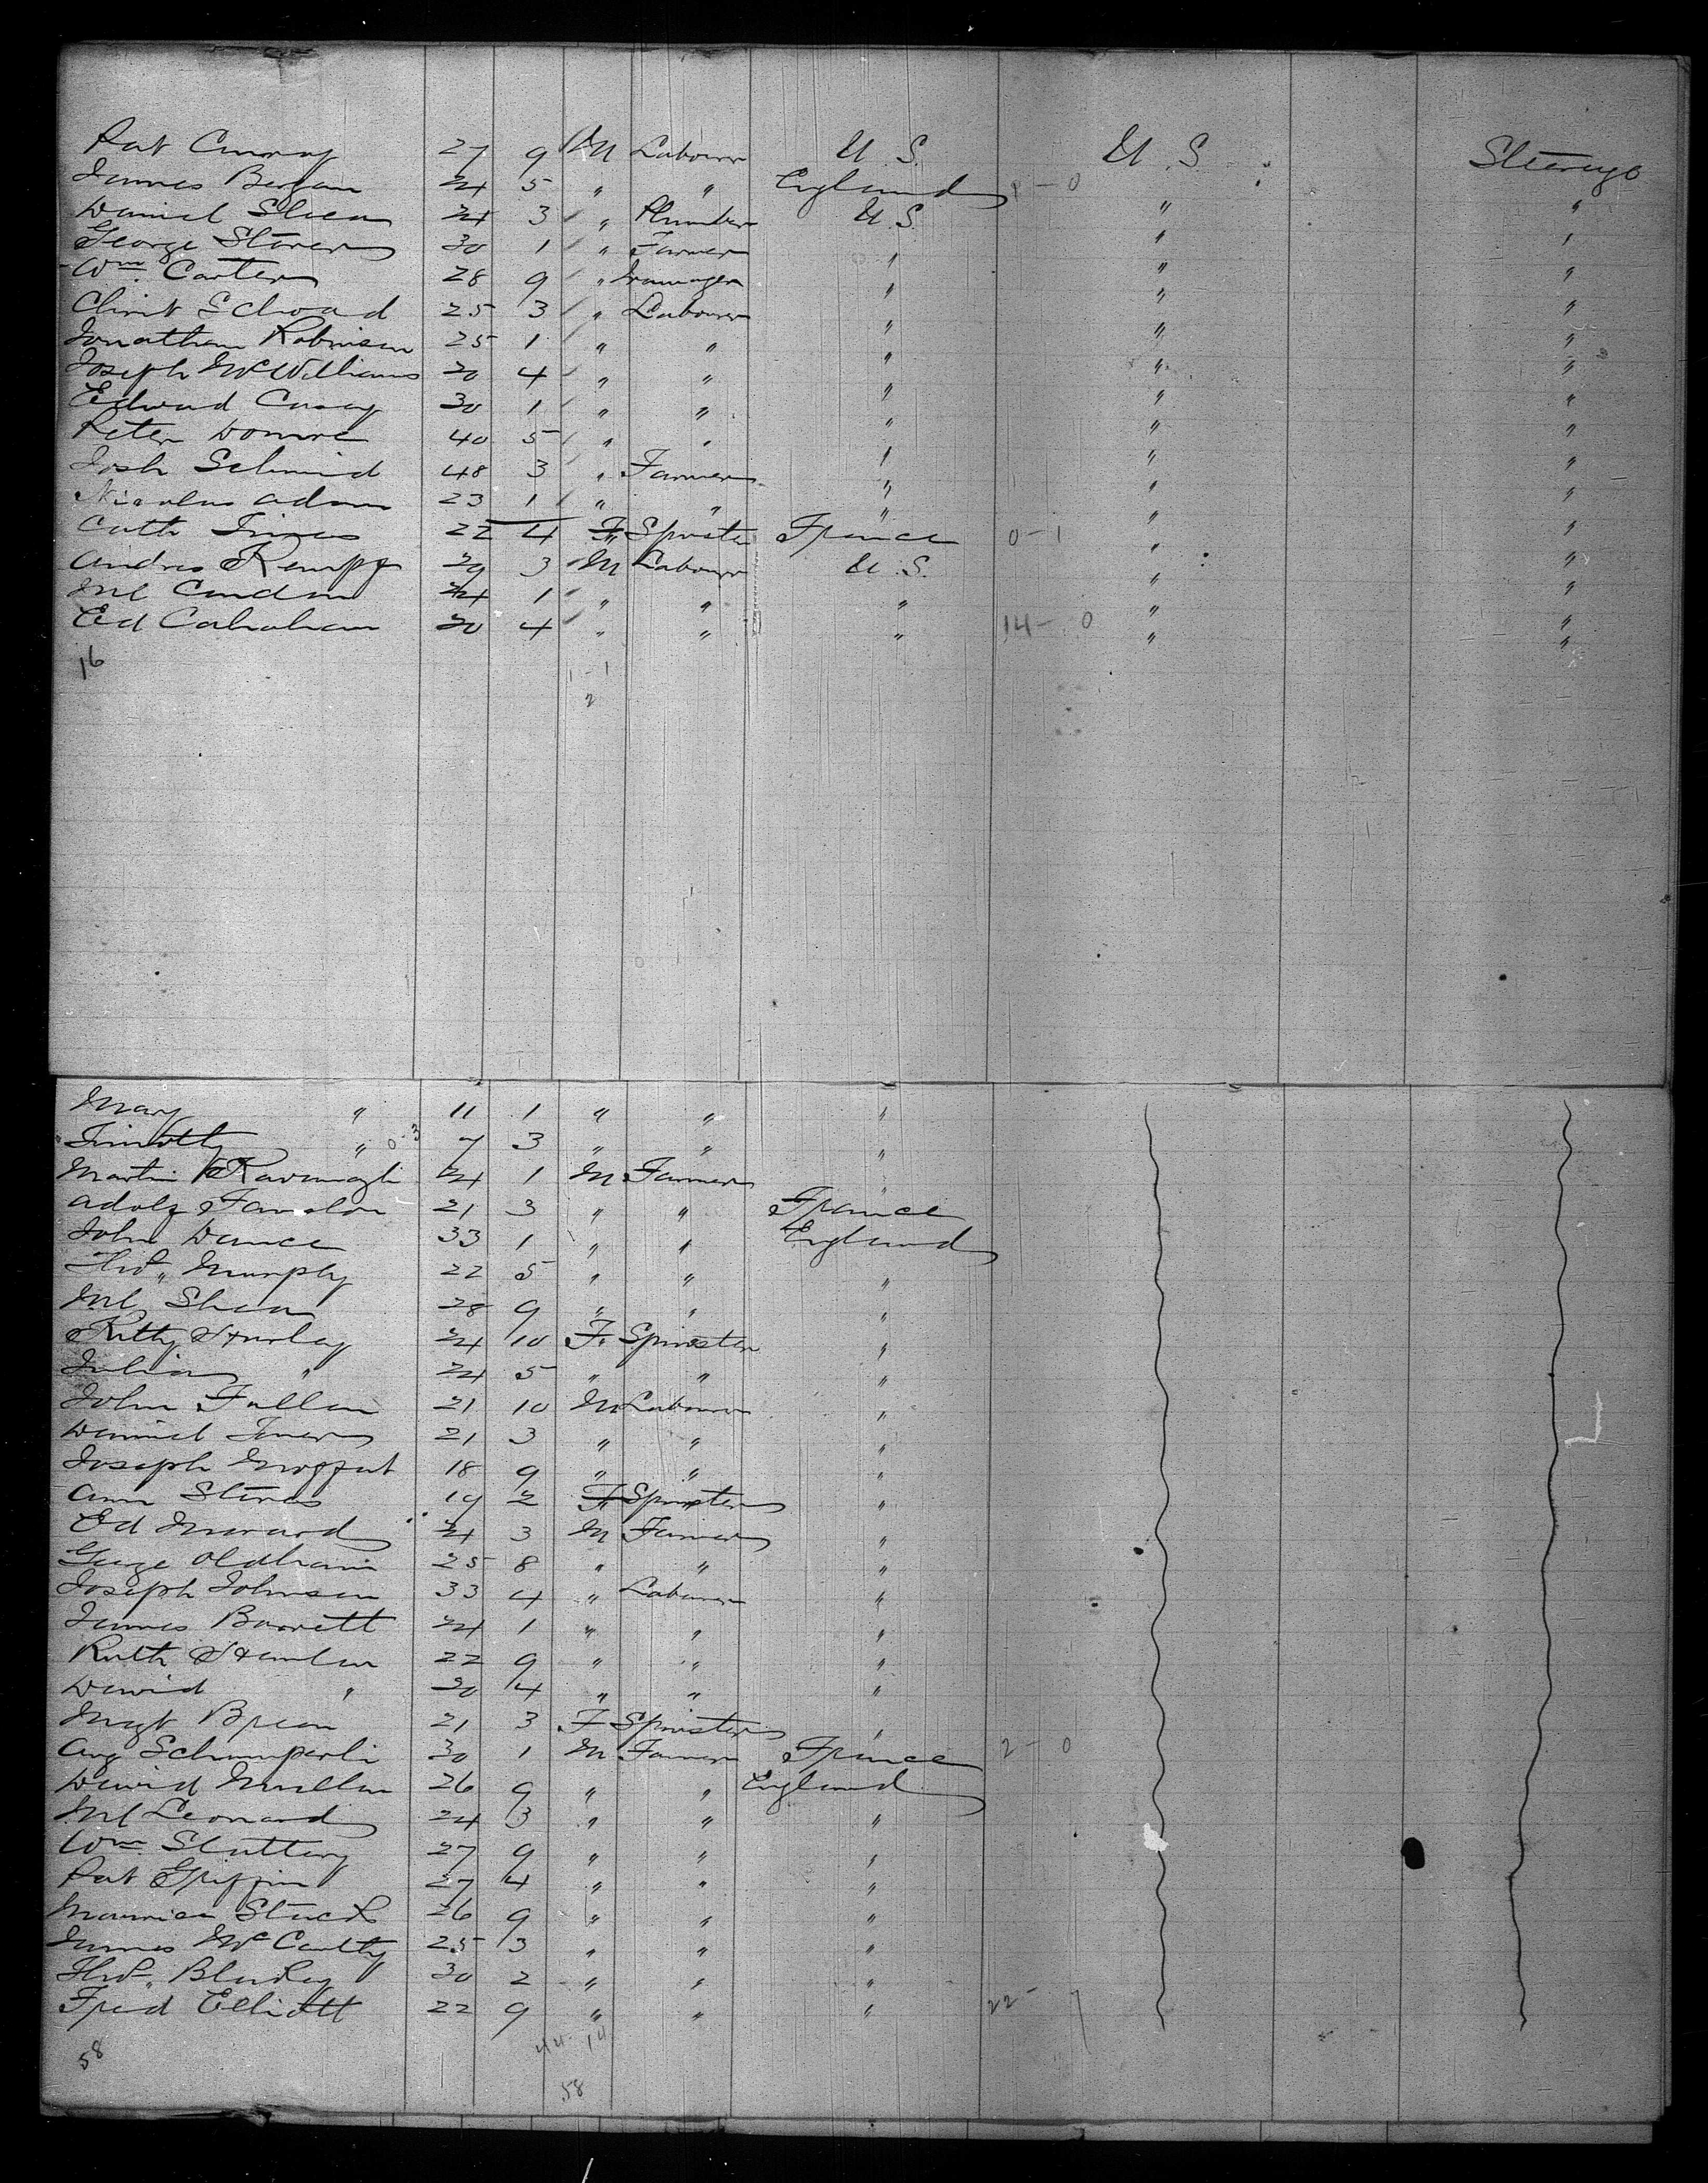 Pat Conroy 27 9 M Labourer U.S. U.S. Steerage
James Bergan 24 5 " " England 1-0 " "
Daniel Shea 24 3 " Plumber U.S. " "
George Stevens 30 1 " Farmer " " "
Wm. Carter 28 9 " Manager " " "
Christ Schoad 25 3 " Labourer " " "
Jonathan Robinson 25 1 " " " " "
Joseph McWilliams 20 4 " " " " "
Edward Casey 30 1 " " " " "
Peter 40 5 " " " " "
Josh Schmid 48 3 " Farmer " " "
Nicolas Adam 23 1 " " " " "
Cath 22 4 F Spinster France 0-1 " "
Andres Kempf 29 3 M Labourer U.S. " "
Ml Condon 24 1 " " " " "
Ed Calnahan 20 4 " " " 14-0 " "
16 1-1
2
Mary " 11 1 " " "
Timothy " 0-3 7 3 " " "
Martin Kavanagh 24 1 M Farmer "
Adolf 21 3 " " France
John Dance 33 1 " " England
Thos. Murphy 22 5 " " "
Ml Shea 28 9 " " "
Kitty Hurley 24 10 F. Spinster "
Julia " 24 5 " " "
John Fallon 21 10 M Labourer "
Daniel 21 3 " " "
Joseph Moffat 18 9 " " "
Ann Stevens 19 2 F Spinster "
Ed 24 3 M Farmer "
George Oldham 25 8 " " "
Joseph Johnson 33 4 " Labourer "
James Barrett 24 1 " " "
Ruth Hanlan 22 9 " " "
David " 20 4 " " "
Mgt 21 3 F Spinster "
Aug Schumperli 30 1 M Farmer France 2-0
David Mullan 26 9 " " England
Ml Leonard 24 3 " " "
Wm Slattery 27 9 " " "
Pat Griffin 27 4 " " "
Maurice Stack 26 9 " " "
James McCaulty 25 3 " " "
Thos. 30 2 " " "
Fred Elliott 22 9 " " " 22-7
58 44-14
58